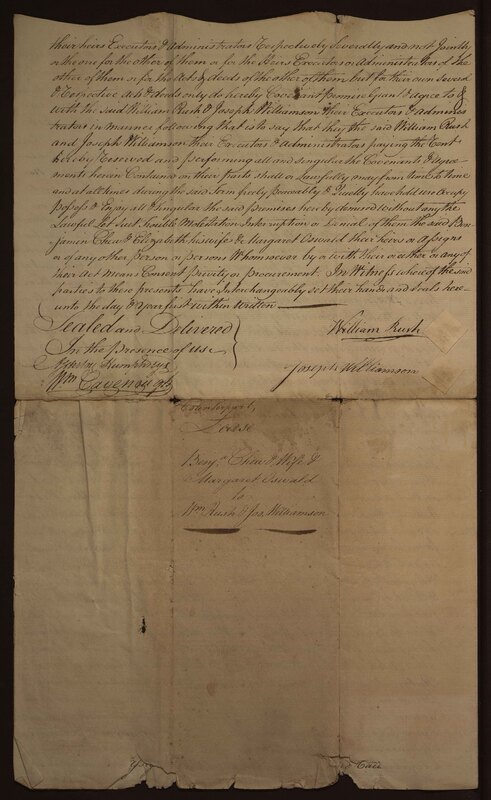 their heirs Executors & Administrators Respectively Severally and not Jointly
or the one for the other of them or for the Heirs Executors or Administrators of the
other of them or for the Acts & deeds of the other of them but for their own Several
& Respective Acts & deeds only do hereby Covenant Promise Grant & agree to &
with the said William Rush & Joseph Williamson their Executors & Adminis
trators in manner following that is to say that they the said William Rush
and Joseph Williamson their Executors & Administrators paying the Rent
hereby Reserved and performing all and singular the Covenants & Agree
ments herein Contained on their parts shall & Lawfully may from time to time
and at all times during the said Term freely peaceably & Quietly have hold use Occupy
Possess & Enjoy all & singular the said premises hereby demised without any the
Lawful Let Suit Trouble Molestation Interruption or Denial of them the said Ben
jamin Chew & Elizabeth his wife & Margaret Oswald their heirs or Assigns
or of any other person or persons Whomsoever by or with their or either or any of
their Act means Consent privity or procurement. In Witness whereof the said
parties to these presents have Interchangeably set their hands and seals here
unto the day & Year first within written
Sealed and Delivered
In the Presence of Us
Humphreys
Wm Cavenough
William Rush
Joseph Williamson
Counterpart,
Lease
Benjn. Chew & Wife &
Margaret Oswald
to
Wm Rush & Jos. Williamson